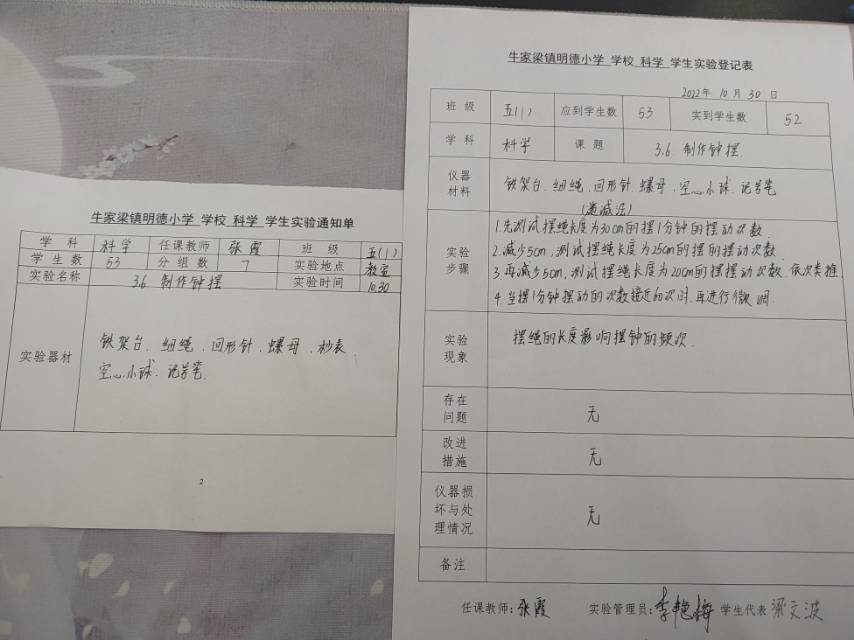 牛家梁镇明德小学 学校 科学 学生实验通知单
学 科 科学 任课教师 张霞 班 级 五(1)
学 生 数 53 分 组 数 7 实验地点 教室
实验名称 3.6 制作钟摆 实验时间 10.30
实验器材 铁架台、细绳、回形针、螺母、秒表、
空心小球、记号笔
2
牛家梁镇明德小学 学校 科学 学生实验登记表
2022年 10 月 30 日
班 级 五(1) 应到学生数 53 实到学生数 52
学 科 科学 课 题 3.6. 制作钟摆.
仪器
材料 铁架台、细绳、回形针、螺母、空心小球、记号笔
(递减法)
实验
步骤 1.先测试摆绳长度为30cm的摆1分钟的摆动次数
2.减少5cm,测试摆绳长度为25cm的摆的摆动次数
3.再减少5cm,测试摆绳长度为20cm的摆摆动次数,依次类推
4.当摆1分钟摆动的次数接近60次时,再进行微调.
实验
现象 摆绳的长度影响摆钟的频次.
存在
问题 无
改进
措施 无
仪器损
坏与处
理情况 无
备注
任课教师:张霞 实验管理员:李艳梅 学生代表 梁文波